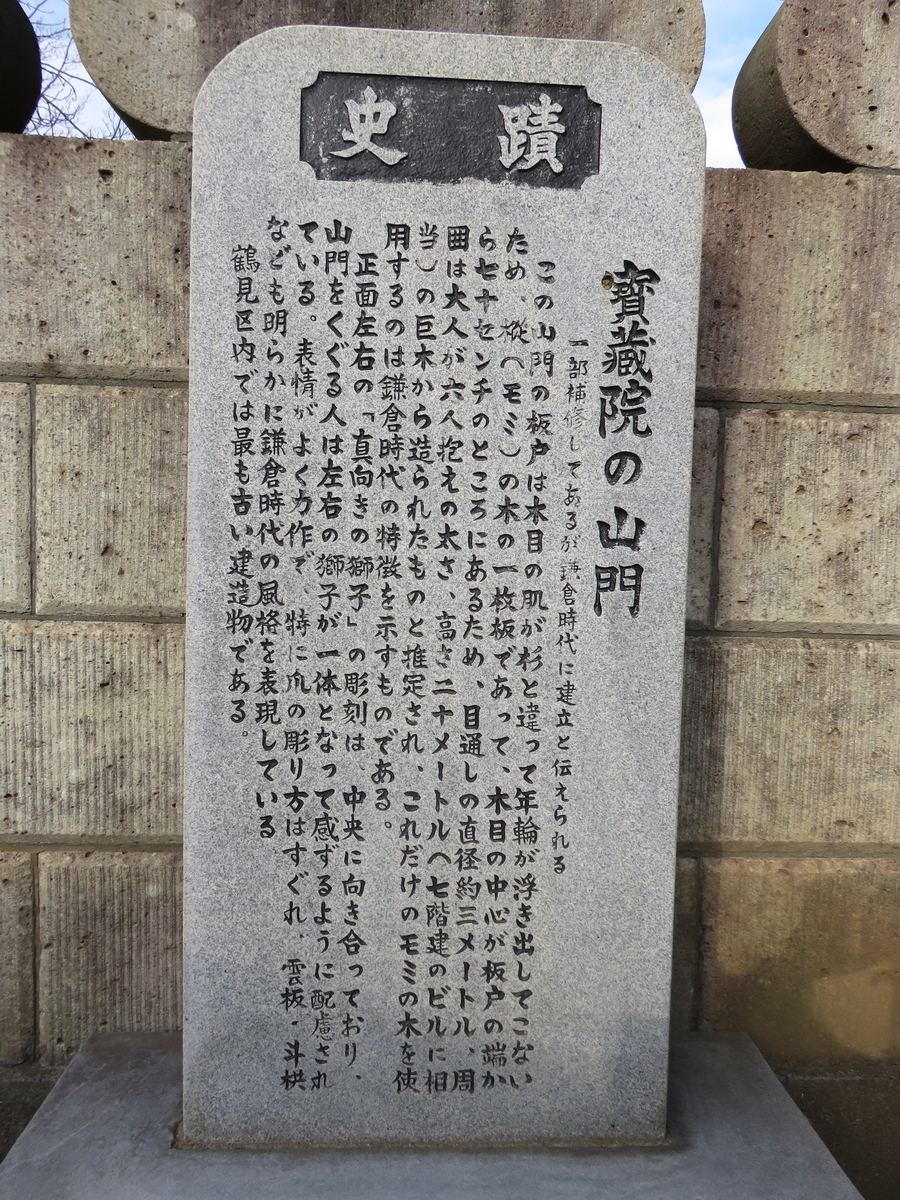 史蹟
寶藏院の山門
一部補修してあるが鎌倉時代に建立と伝えられる
この山門の板戸は木目の肌が杉と違って年輪が浮き出してこない
ため、樅(モミ)の木の一枚板であって、木目の中心が板戸の端か
ら七十センチのところにあるため、目通しの直径約三メートル、周
囲は大人が六人抱えの太さ、高さ二十メートル(七階建のビルに相
当)の巨木から造られたものと推定され、これだけのモミの木を使
用するのは鎌倉時代の特徴を示すものである。
正面左右の「真向きの獅子」の彫刻は、中央に向き合っており、
山門をくぐる人は左右の獅子が一体となって感ずるように配慮され
ている。表情がよく力作で、特に爪の彫り方はすぐれ、雲板・斗栱
なども明らかに鎌倉時代の風格を表現している
鶴見区内では最も古い建造物である。